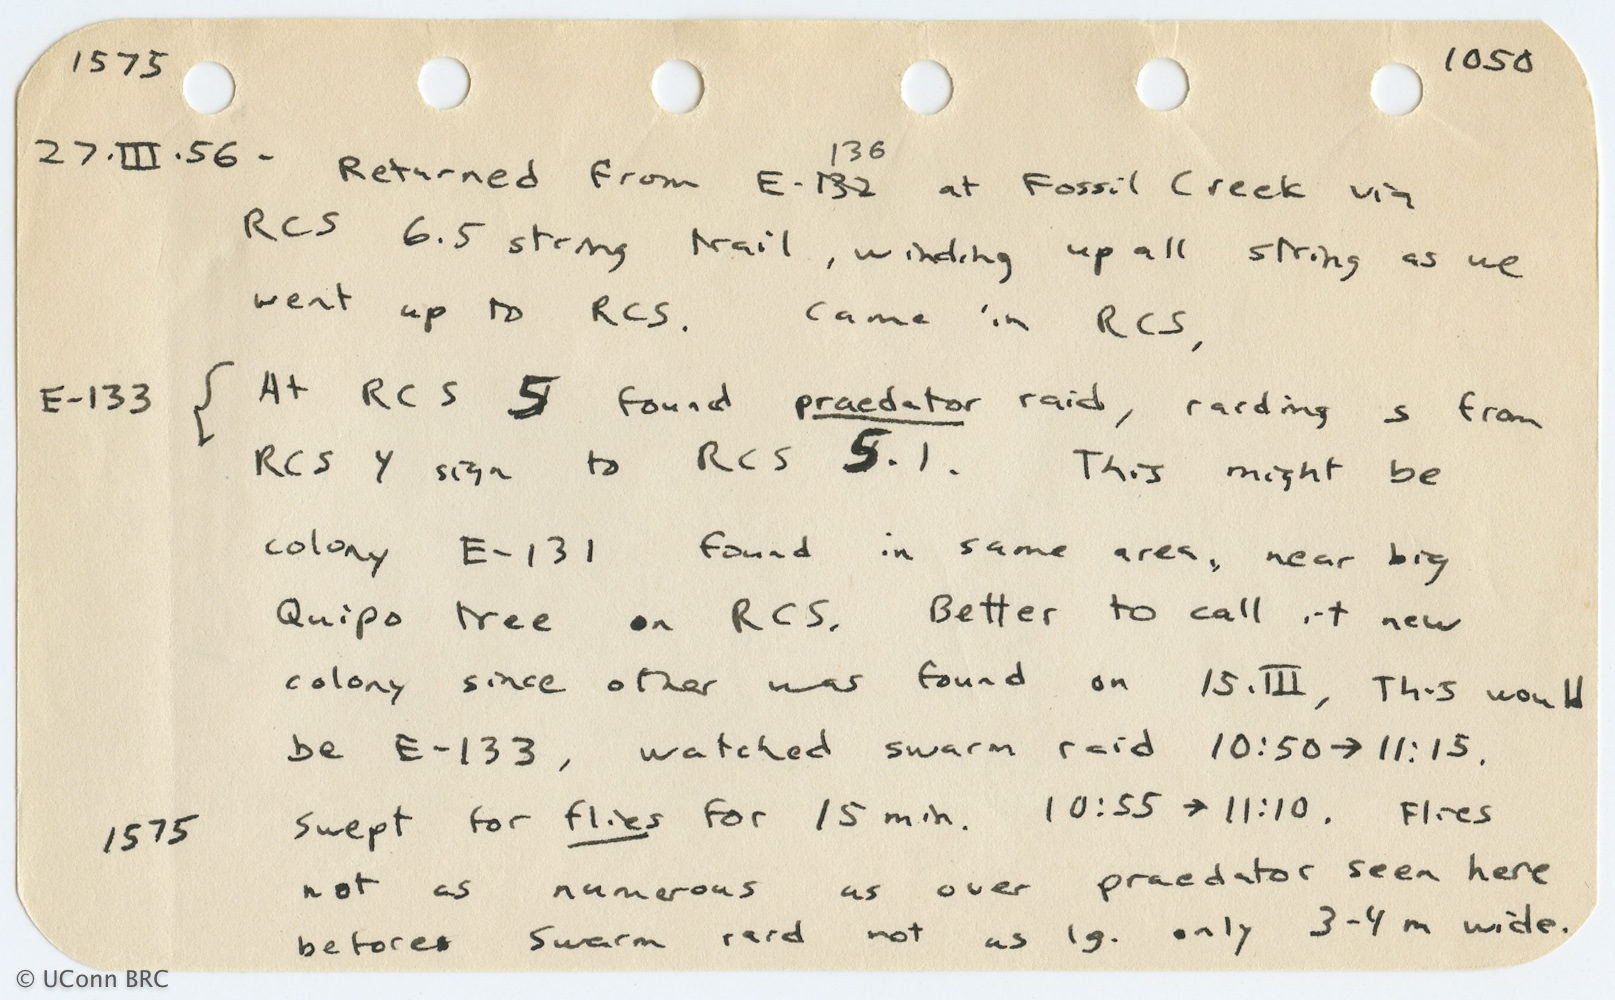 1575 1050
27.III.56 - Returned from E-132 136 at Fossil Creek via
RCS 6.5 string trail, winding up all string as we
went up to RCS. Came in RCS,
E-133 { At RCS 5 found praedator raid, raiding s from
RCS 4 sign to RCS 5.1. This might be
colony E-131 found in same area, near big
Quipo tree on RCS. Better to call it new
colony since other was found on 15.III, This would
be E-133, watched swarm raid 10:50→11:15.
1575 Swept for flies for 15 min. 10:55→11:10. Flies
not as numerous as over praedator seen here
before Swarm raid not as lg. only 3-4 m wide.
© UConn BRC